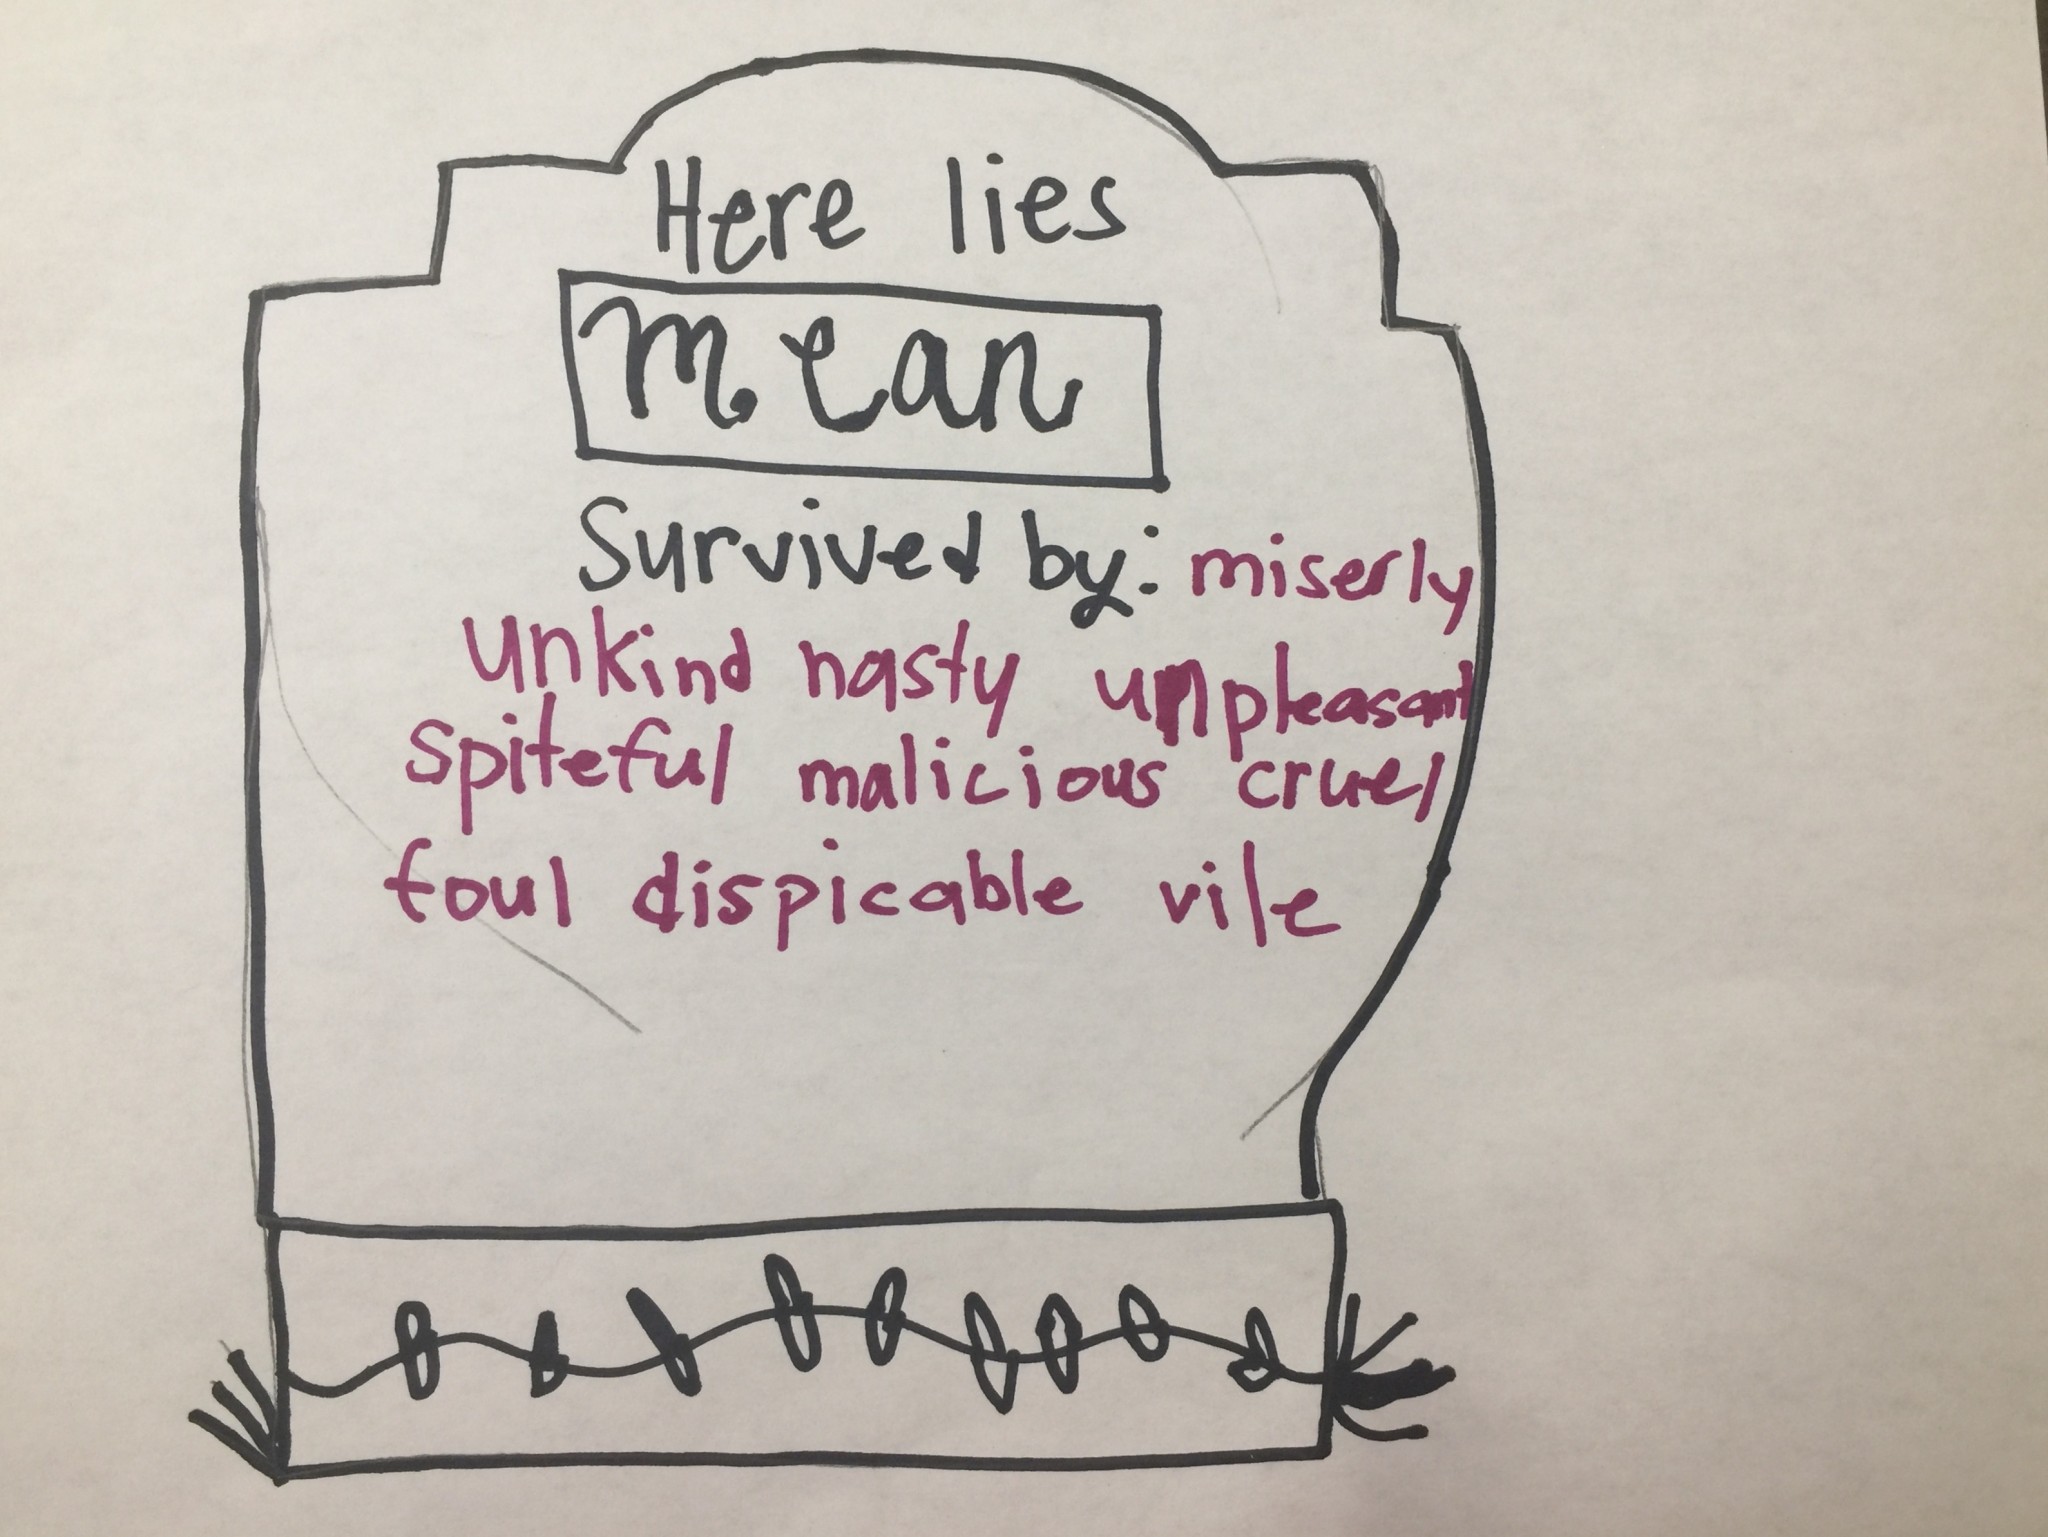 Here lies
mean
Survived by: miserly
unkind nasty unpleasant
spiteful malicious cruel
foul dispicable vile